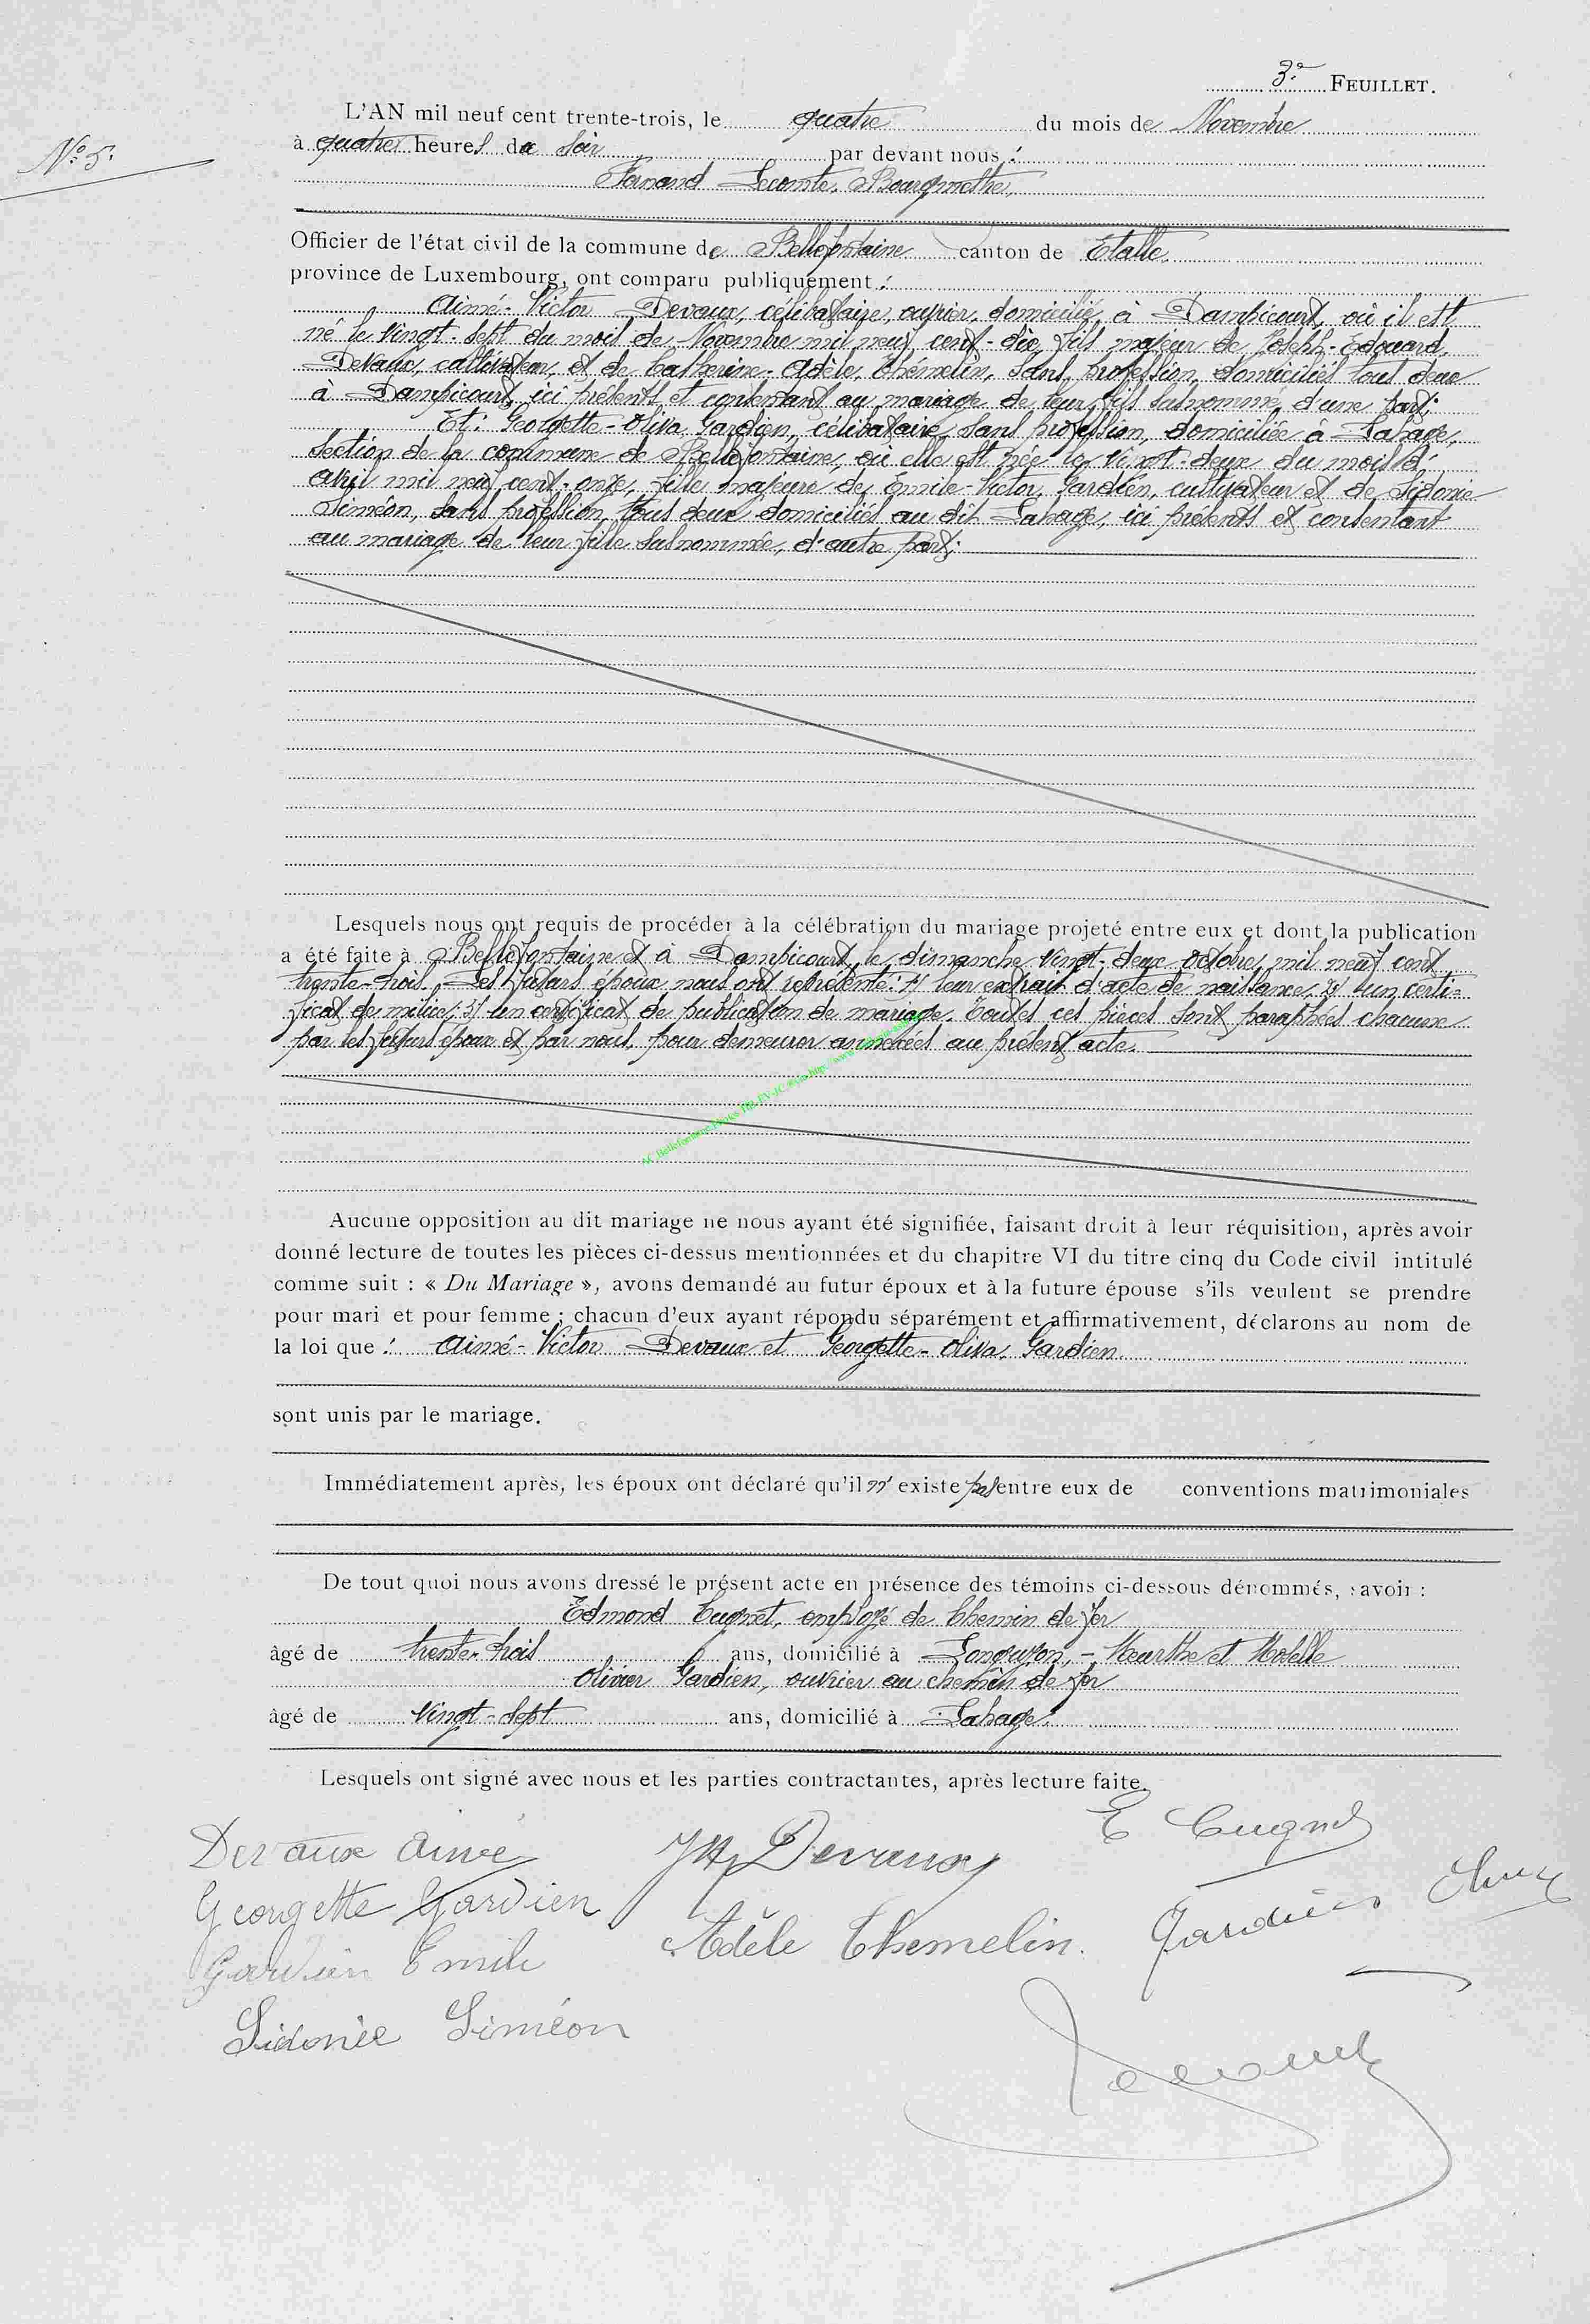 3e FEUILLET.
L'AN mil neuf cent trente-trois, le quatre du mois de Novembre
N° 5.
à quatre heures du soir par devant nous :
Fernand Lecomte, Bourgmestre,
Officier de l'état civil de la commune de Bellefontaine canton de Etalle,
province de Luxembourg, ont comparu publiquement :
Aimé-Victor Devaux, célibataire, ouvrier, domicilié à Dampicourt, où il est
né le vingt-sept du mois de Novembre mil neuf cent-dix, fils majeur de Joseph-Edouard
Devaux, cultivateur, et de Catherine-Adèle Thémelin, sans profession, domiciliés tous deux
à Dampicourt, ici présents et consentant au mariage de leur fils susnommé, d'une part;
Et: Georgette-Oliva Gardien, célibataire, sans profession, domiciliée à Lahage,
section de la commune de Bellefontaine, où elle est née le vingt-deux du mois d'
avril mil neuf cent-onze, fille majeure de Emile-Victor Gardien, cultivateur et de Sidonie
Siméon, sans profession, tous deux domiciliés au dit Lahage, ici présents et consentant
au mariage de leur fille susnommée, d'autre part;
Lesquels nous ont requis de procéder à la célébration du mariage projeté entre eux et dont la publication
a été faite à Bellefontaine et à Dampicourt, le dimanche vingt-deux octobre, mil neuf cent
trente-trois. Les futurs époux nous ont représenté: 1) leur extrait d'acte de naissance, 2) un certi-
ficat de milice; 3) un certificat de publication de mariage. Toutes ces pièces sont paraphées chacune
par les futurs époux et par nous, pour demeurer annexées au présent acte.
Aucune opposition au dit mariage ne nous ayant été signifiée, faisant droit à leur réquisition, après avoir
donné lecture de toutes les pièces ci-dessus mentionnées et du chapitre VI du titre cinq du Code civil intitulé
comme suit : « Du Mariage », avons demandé au futur époux et à la future épouse s'ils veulent se prendre
pour mari et pour femme ; chacun d'eux ayant répondu séparément et affirmativement, déclarons au nom de
la loi que : Aimé-Victor Devaux et Georgette-Oliva Gardien
sont unis par le mariage.
Immédiatement après, les époux ont déclaré qu'il n'existe pas entre eux de conventions matrimoniales
De tout quoi nous avons dressé le présent acte en présence des témoins ci-dessous dénommés, savoir :
Edmond Cugnet, employé de Chemin de fer
âgé de trente-trois ans, domicilié à Longuyon, - Meurthe et Moselle
Olivier Gardien, ouvrier au chemin de fer
âgé de vingt-sept ans, domicilié à Lahage.
Lesquels ont signé avec nous et les parties contractantes, après lecture faite.
Devaux Aimé
Georgette Gardien
Gardien Emile
Sidonie Siméon
Devaux
Adèle Themelin.
E Cugnet
Gardien